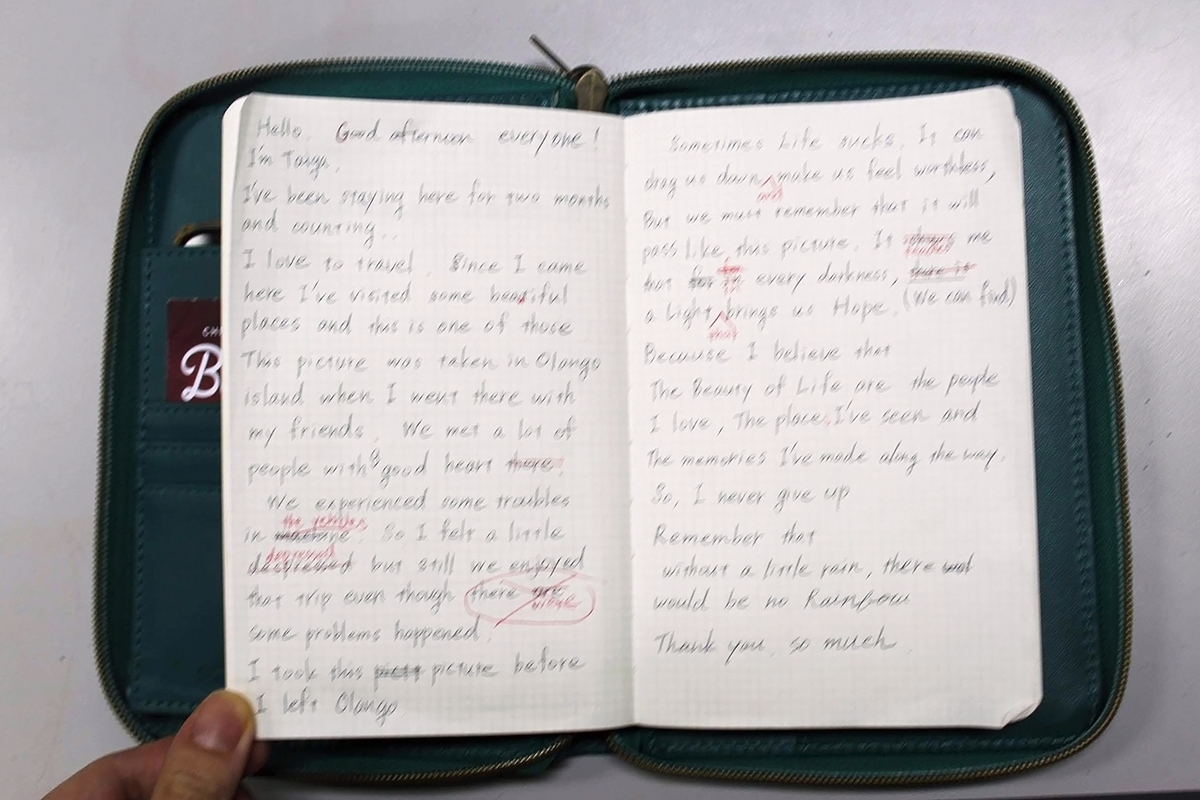 Hello. Good afternoon everyone!
I'm Taiga.
I've been staying here for two months
and counting..
I love to travel. Since I came
here I've visited some beautiful
places and this is one of those
This picture was taken in Olango
island when I went there with
my friends. We met a lot of
people with a good heart there.
We experienced some troubles
in machine. So I felt a little
depressed
depressed but still we enjoyed
that trip even though there are
some problems happened.
I took this pict picture before
I left Olango
B
Sometimes Life sucks. It can
drag us down, make us feel worthless,
and
But we must remember that it will
pass like this picture. It shows me
that for in every darkness, there is
a Light brings us Hope. (We can find)
that
Because I believe that
The Beauty of Life are the people
I love, The place, I've seen and
The memories I've made along the way.
So, I never give up
Remember that
without a little rain, there
would be no Rainbow
Thank you so much.